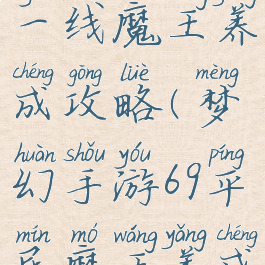 一线魔王养
chéng gōng lüè mèng
成攻略(梦
huàn shǒu yóu píng
幻手游69平
mín mó wáng yǎng chéng
民魔王养成